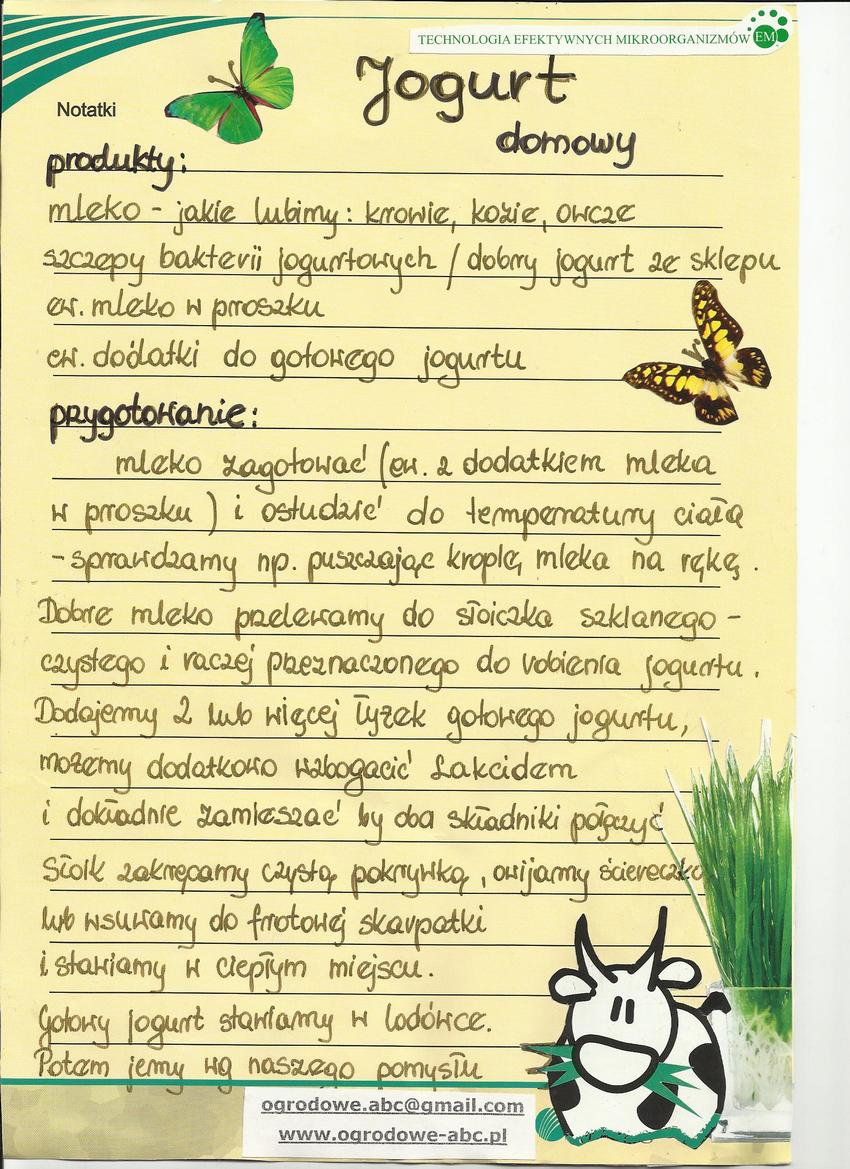 TECHNOLOGIA EFEKTYWNYCH MIKROORGANIZMÓW EM
Notatki
Jogurt
domowy
produkty:
mleko - jakie lubimy: krowie, kozie, owcze
szczepy bakterii jogurtowych / dobry jogurt ze sklepu
ew. mleko w proszku
ew. dodatki do gotowego jogurtu
przygotowanie:
mleko zagotować (ew. z dodatkiem mleka
w proszku) i ostudzić do temperatury ciała
- sprawdzamy np. puszczając kroplę mleka na rękę.
Dobre mleko przelewamy do słoiczka szklanego -
czystego i raczej przeznaczonego do robienia jogurtu.
Dodajemy 2 lub więcej łyżek gotowego jogurtu,
możemy dodatkowo wzbogacić Lakcidem
i dokładnie zamieszać by oba składniki połączyć
Słoik zakręcamy czystą pokrywką, owijamy ściereczką
lub wsuwamy do frotowej skarpetki
i stawiamy w ciepłym miejscu.
Gotowy jogurt stawiamy w lodówce.
Potem jemy wg naszego pomysłu
ogrodowe.abc@gmail.com
www.ogrodowe-abc.pl